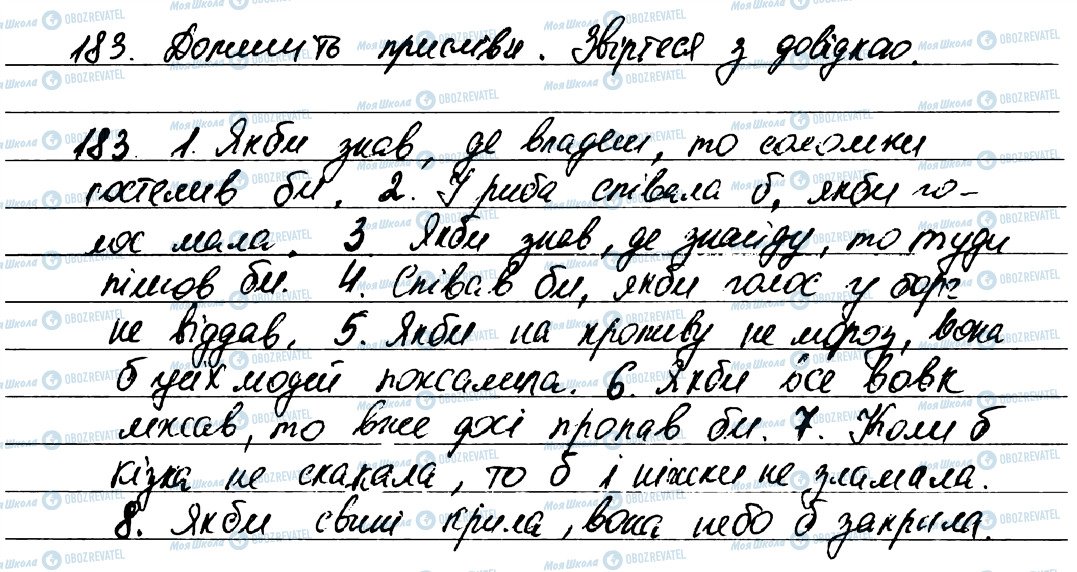 183. Допишіть прислівки. Звіртеся з довідкою.
183. 1. Якби знав, де впадеш, то соломки
постелив би. 2. У риба співала б, якби го-
лос мала. 3. Якби знав, де знайду, то туди
пішов би. 4. Співав би, якби голос у борг
не віддав. 5. Якби на кропиву не мороз, вона
б усіх людей пожалила. 6. Якби все вовк
лежав, то вже досі пропав би. 7. Коли б
кізка не скакала, то б і ніжки не зламала.
8. Якби свині крила, вона небо б закрила.